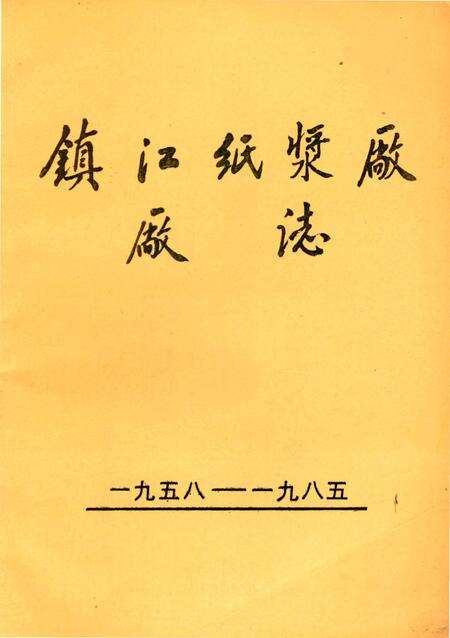 鎮江纸漿廠
廠誌
一九五八——一九八五